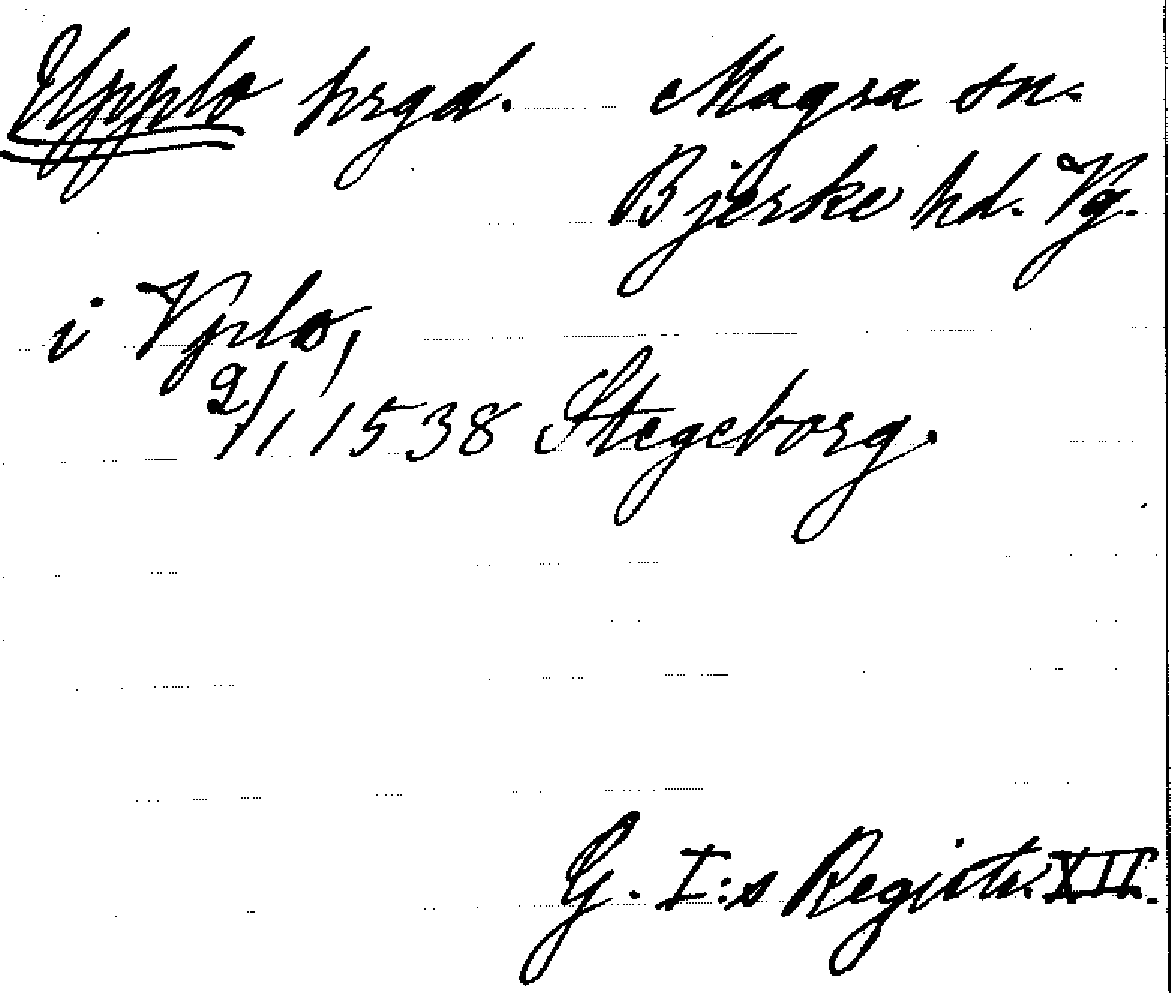 Upplo hrgd. Magra sn.
Bjerke hd. Vg.
i Vplo,
2/1 1538 Stegeborg.
G. I:s Registr. XII.